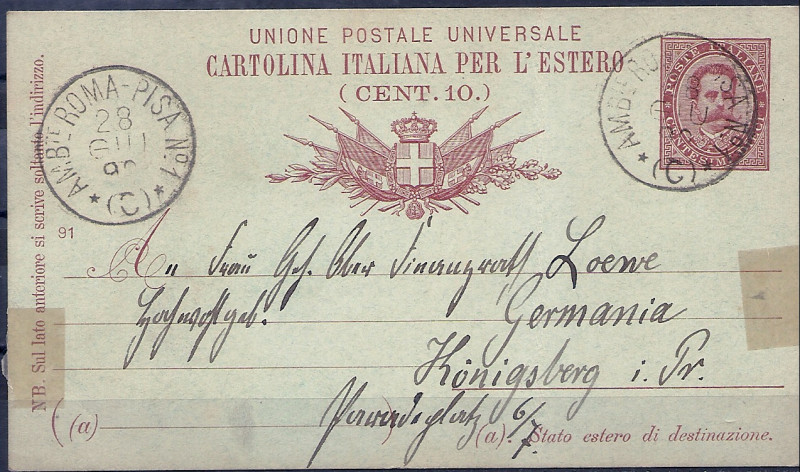 UNIONE POSTALE UNIVERSALE
CARTOLINA ITALIANA PER L'ESTERO
(CENT. 10.)
AMB.TE ROMA-PISA N.º 1
28
GIU
* (C) *
AMB.TE ROMA-PISA N.º 1
* (C) *
POSTE ITALIANE
CENTESIMI DIECI
NB. Sul lato anteriore si scrive soltanto l'indirizzo.
91
An Frau Geh. Ober Finanzrath Loewe
Hochwohlgeb.
Germania
Königsberg i. Pr.
Paradeplatz 6/7.
(a)
(a) Stato estero di destinazione.